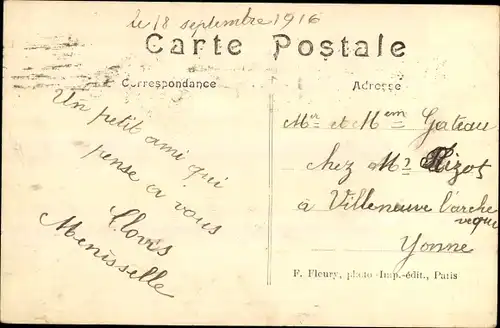 le 18 septembre 1916
Carte Postale
Correspondance
Adresse
Un petit ami qui
pense a vous
Clovis
Menisselle
Mer et Mem Gateau
chez Mr Rizot
à Villeneuve l'arche
veque
Yonne
F. Fleury, photo-Imp.-édit., Paris